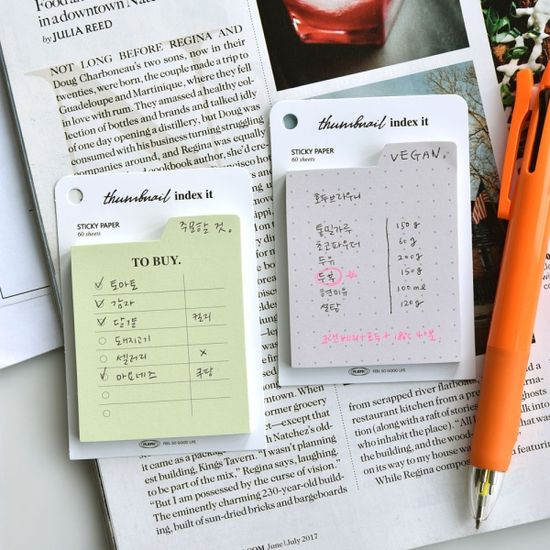 in a downtown Natche
by JULIA REED
NOT LONG BEFORE REGINA AND
Doug Charboneau's two sons, now in their
twenties, were born, the couple made a trip to
Guadeloupe and Martinique, where they fell
in love with rum. They amassed a healthy col-
lection of bottles and brands and talked idly
of one day opening a distillery, but Doug was
consumed with his business turning struggling
companies around, and Regina was equally
cookbook author, she'd cre-
thumbnail index it
STICKY PAPER
60 sheets
주문할 것.
TO BUY.
토마토
감자
달걀
컬리
돼지고기
샐러리
x
마요네즈
쿠팡
PLEPIC
FEEL SO GOOD LIFE
thumbnail index it
STICKY PAPER
60 sheets
VEGAN.
호두브라우니
통밀가루 150g
초코파우더 60g
두유 200g
두부 150g
100ml
설탕 120g
PLEPIC
FEEL SO GOOD LIFE
former grocery
except that
Natchez's old-
it came as a package
est building, King's Tavern. "I wasn't planning
to be part of the mix," Regina says, laughing,
"But I am possessed by the curse of vision."
The eminently charming 230-year-old build-
ing, built of sun-dried bricks and bargeboards
from scrapped river flatboats,
restaurant kitchen from a pre
(along with a raft of stories
who inhabit the place). "All
the building, and the wood-
on its way to my house wa
While Regina compos
.COM June | July 2017